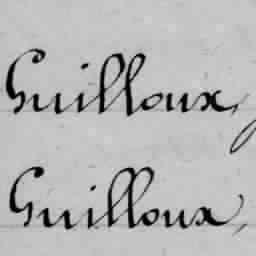 Guilloux,
Guilloux,